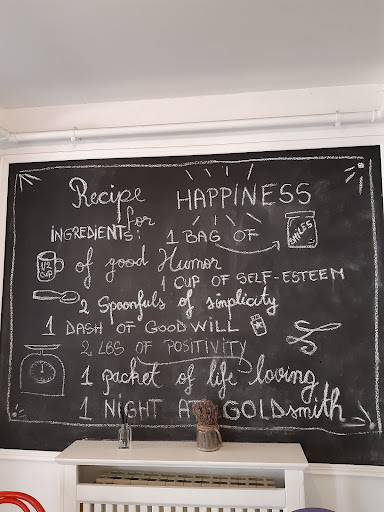 Recipe for HAPPINESS
INGREDIENTS: 1 BAG OF SMILES
1/2 CUP of good Humor
1 CUP OF SELF-ESTEEM
2 Spoonfuls of simplicity
1 DASH OF GOODWILL
2 LBS OF POSITIVITY
1 packet of life loving
1 NIGHT AT GOLDsmith